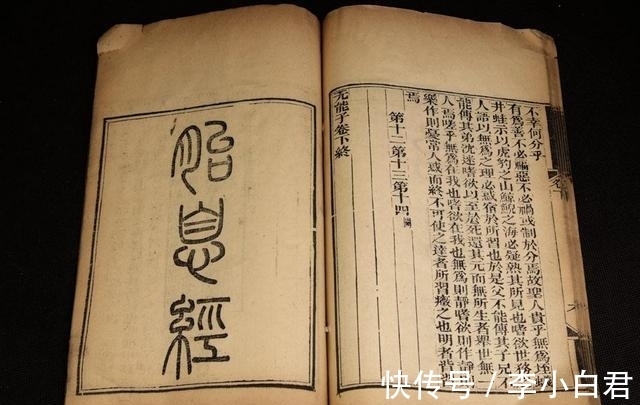 不幸何分乎
有為善不必福惡不必禍或制於分焉故聖人貴乎無為垤
井蛙示以虎豹之山鯨鯢之海必疑熟其所見也嗜欲世務
人語以無為之理必惑宿於所習也於是父不能傳其子兄不
能傳其弟沈迷嗜欲以至於死還其元而無所生者舉世無
人焉嗟乎無為在我也嗜欲在我也無為則靜嗜欲
樂作則憂常人惑而終不可使之達者所習癥之也明者背
焉
第十二第十三第十四闕
无能子卷下終
胎息經
快传号 / 李小白君